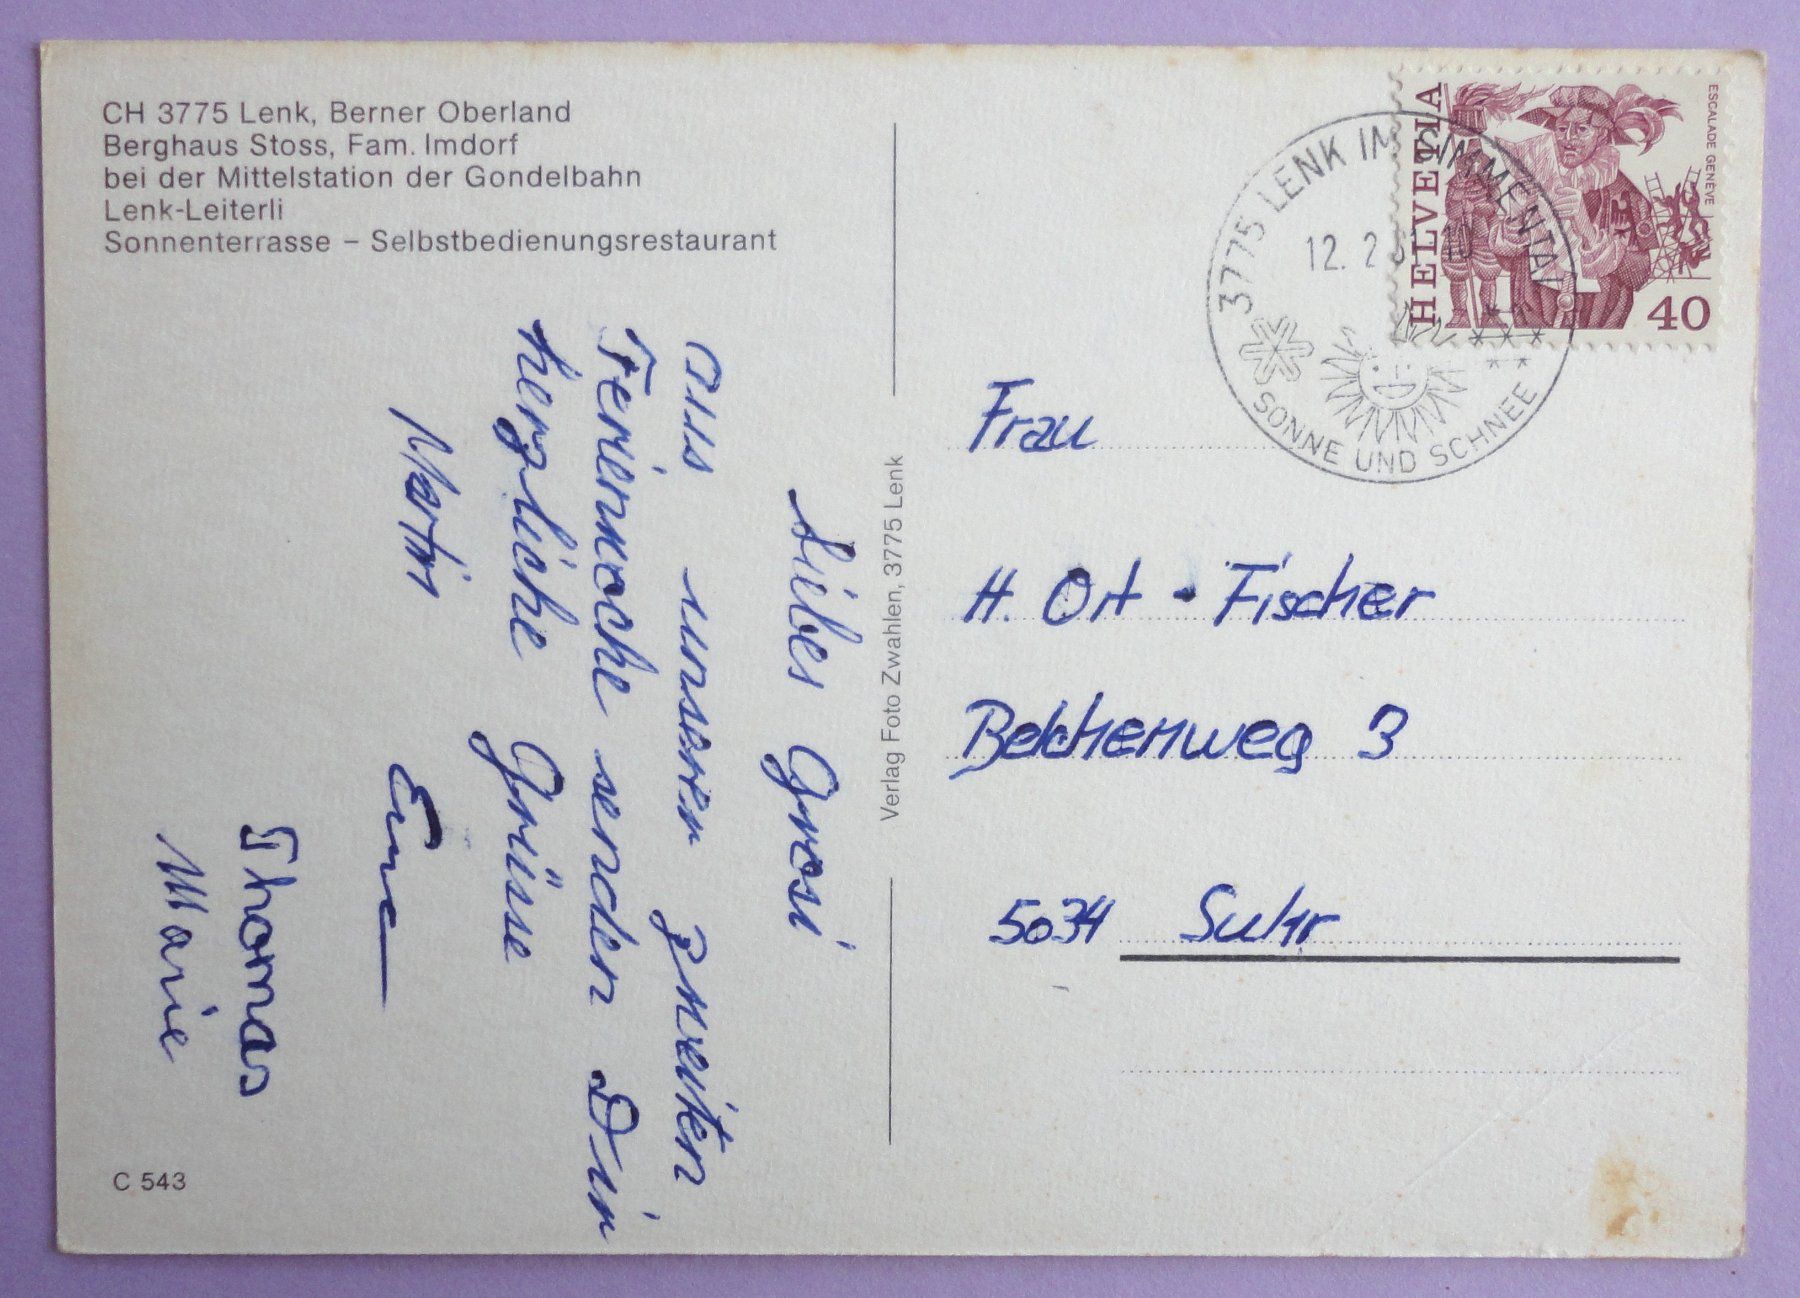 CH 3775 Lenk, Berner Oberland
Berghaus Stoss, Fam. Imdorf
bei der Mittelstation der Gondelbahn
Lenk-Leiterli
Sonnenterrasse – Selbstbedienungsrestaurant
Liebes Grosi
Aus unserer zweiten
Ferienwoche senden Dir
herzliche Grüsse
Martin
Thomas
Marie
C 543
Verlag Foto Zwahlen, 3775 Lenk
HELVETIA
ESCALADE GENÈVE
40
3775 LENK IM SIMMENTAL
12. 2 10
SONNE UND SCHNEE
Frau
H. Ort - Fischer
Belchenweg 3
5034 Suhr